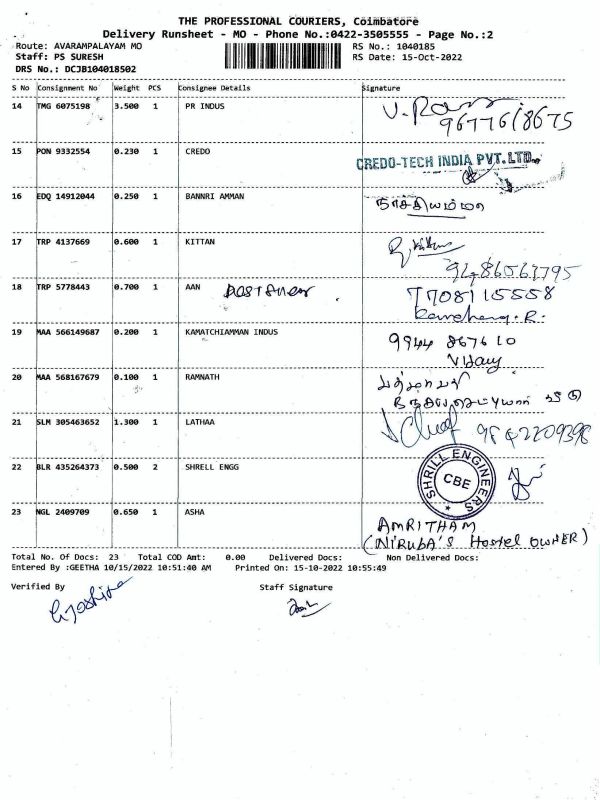 THE PROFESSIONAL COURIERS, Coimbatore
Delivery Runsheet - MO - Phone No.:0422-3505555 - Page No.:2
Route: AVARAMPALAYAM MO RS No.: 1040185
Staff: PS SURESH RS Date: 15-Oct-2022
DRS No.: DCJB104018502
S No Consignment No Weight PCS Consignee Details Signature
14 TMG 6075198 3.500 1 PR INDUS
9677618675
15 PON 9332554 0.230 1 CREDO
CREDO-TECH INDIA PVT. LTD.,
16 EDQ 14912044 0.250 1 BANNRI AMMAN
17 TRP 4137669 0.600 1 KITTAN
18 TRP 5778443 0.700 1 AAN
7708115558
19 MAA 566149687 0.200 1 KAMATCHIAMMAN INDUS
9944 867610
Vijay
20 MAA 568167679 0.100 1 RAMNATH
21 SLM 305463652 1.300 1 LATHAA
9842209398
22 BLR 435264373 0.500 2 SHRELL ENGG
SHRILL ENGINEERS
CBE
23 NGL 2409709 0.650 1 ASHA
AMRITHAM
(NIRUBA'S Hostel OWNER)
Total No. Of Docs: 23 Total COD Amt: 0.00 Delivered Docs: Non Delivered Docs:
Entered By :GEETHA 10/15/2022 10:51:40 AM Printed On: 15-10-2022 10:55:49
Verified By Staff Signature